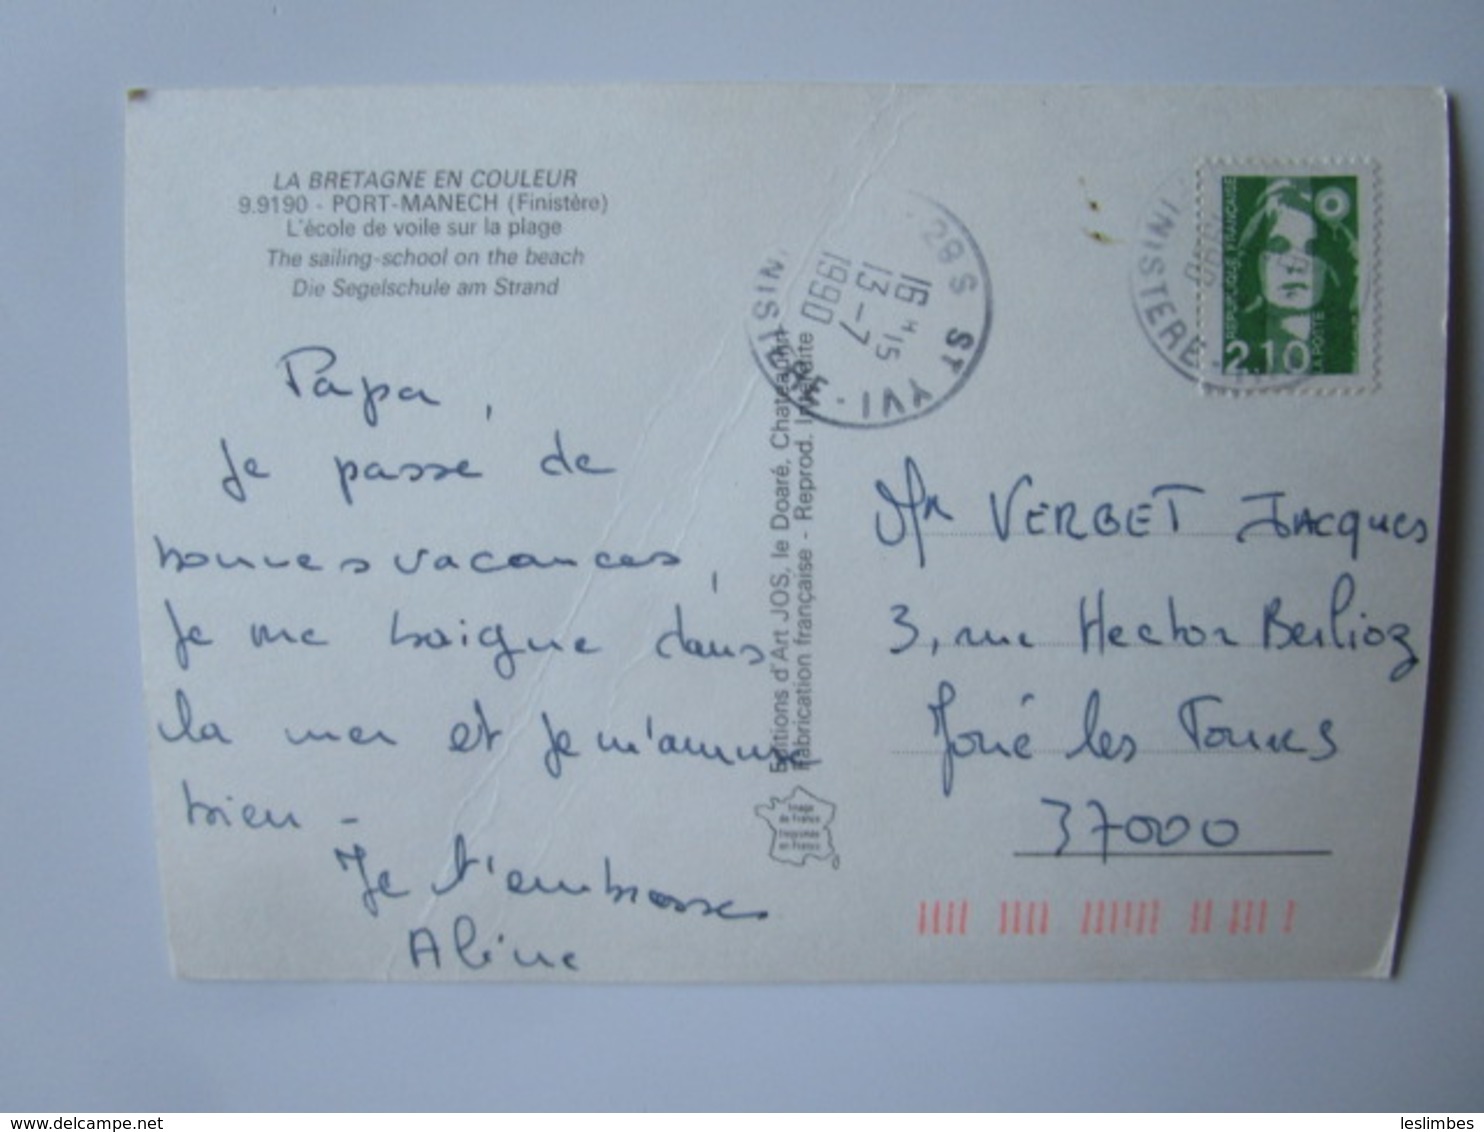 LA BRETAGNE EN COULEUR
9.9190 - PORT-MANECH (Finistère)
L'école de voile sur la plage
The sailing-school on the beach
Die Segelschule am Strand
Papa,
Je passe de
bonnes vacances,
Je me baigne dans
la mer et je m'amuse
bien -
Je t'embrasse
Aline
Editions d'Art JOS, le Doaré, Chateaulin
Fabrication française - Reprod. Interdite
Image
de France
Imprimée
en France
29S ST YVI
FINISTERE
16 H 15
13 - 7
1990
FINISTERE
1990
REPUBLIQUE FRANÇAISE
2,10
LA POSTE
Mr VERBET Jacques
3, rue Hector Berlioz
Joué les Tours
37000
leslimbes